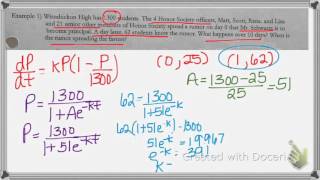 Example 1) Witchdoctor High has 1300 students. The 4 Honor Society officers, Matt, Scott, Anne, and Lisa
and 21 senior other members of Honor Society spread a rumor on day 0 that Mr. Schwartz is to
become principal. A day later, 62 students know the rumor. What happens over 10 days? When is
the rumor spreading the fastest?
dP/dt = kP(1 - P/1300)
(0, 25) (1, 62)
A = 1300-25/25 = 51
P = 1300/1+Ae^-kt
P = 1300/1+51e^-kt
62 = 1300/1+51e^-k
62(1+51e^-k) = 1300
51e^-k = 19.967
e^-k = .391
k =
Created with Doceri